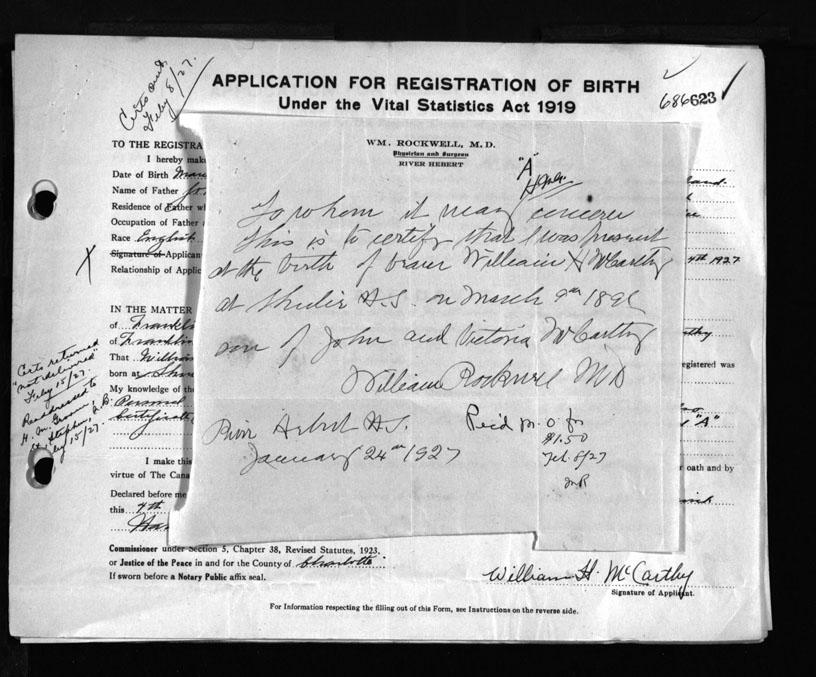 Certs out
Feby 8/27.
APPLICATION FOR REGISTRATION OF BIRTH
Under the Vital Statistics Act 1919
686623
TO THE REGISTRA
I hereby mak
Date of Birth
Name of Father
Residence of Father wh
Occupation of Father
Race English
Signature of Applican
Relationship of Applic
4th 1927
WM. ROCKWELL, M. D.
Physician and Surgeon
RIVER HEBERT
"A"
To whom it may concern
This is to certify that I was present
at the birth of William H McCarthy
at Shulie N.S. on March 9th
son of John and Victoria McCarthy
William Rockwell MD
River Hebert N.S.
January 24th 1927
Rec'd m. o. for
$1.50
Feb. 8/27
IN THE MATTER
of Franklin
of Franklin
That William
born at
My knowledge of the
Personal
Certificate
egistered was
"A"
Certs returned
"not delivered"
Feby 15/27.
Readdressed to
St. Stephen, N.B.
Feby 15/27.
I make this
virtue of The Cana
r oath and by
Declared before me
this 4th
Commissioner under Section 5, Chapter 38, Revised Statutes, 1923.
or Justice of the Peace in and for the County of Charlotte
If sworn before a Notary Public affix seal.
William H. McCarthy
Signature of Applicant.
For Information respecting the filling out of this Form, see Instructions on the reverse side.